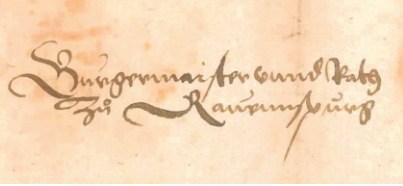 Burgermaister vnnd Rath
Zů Rauennspurg